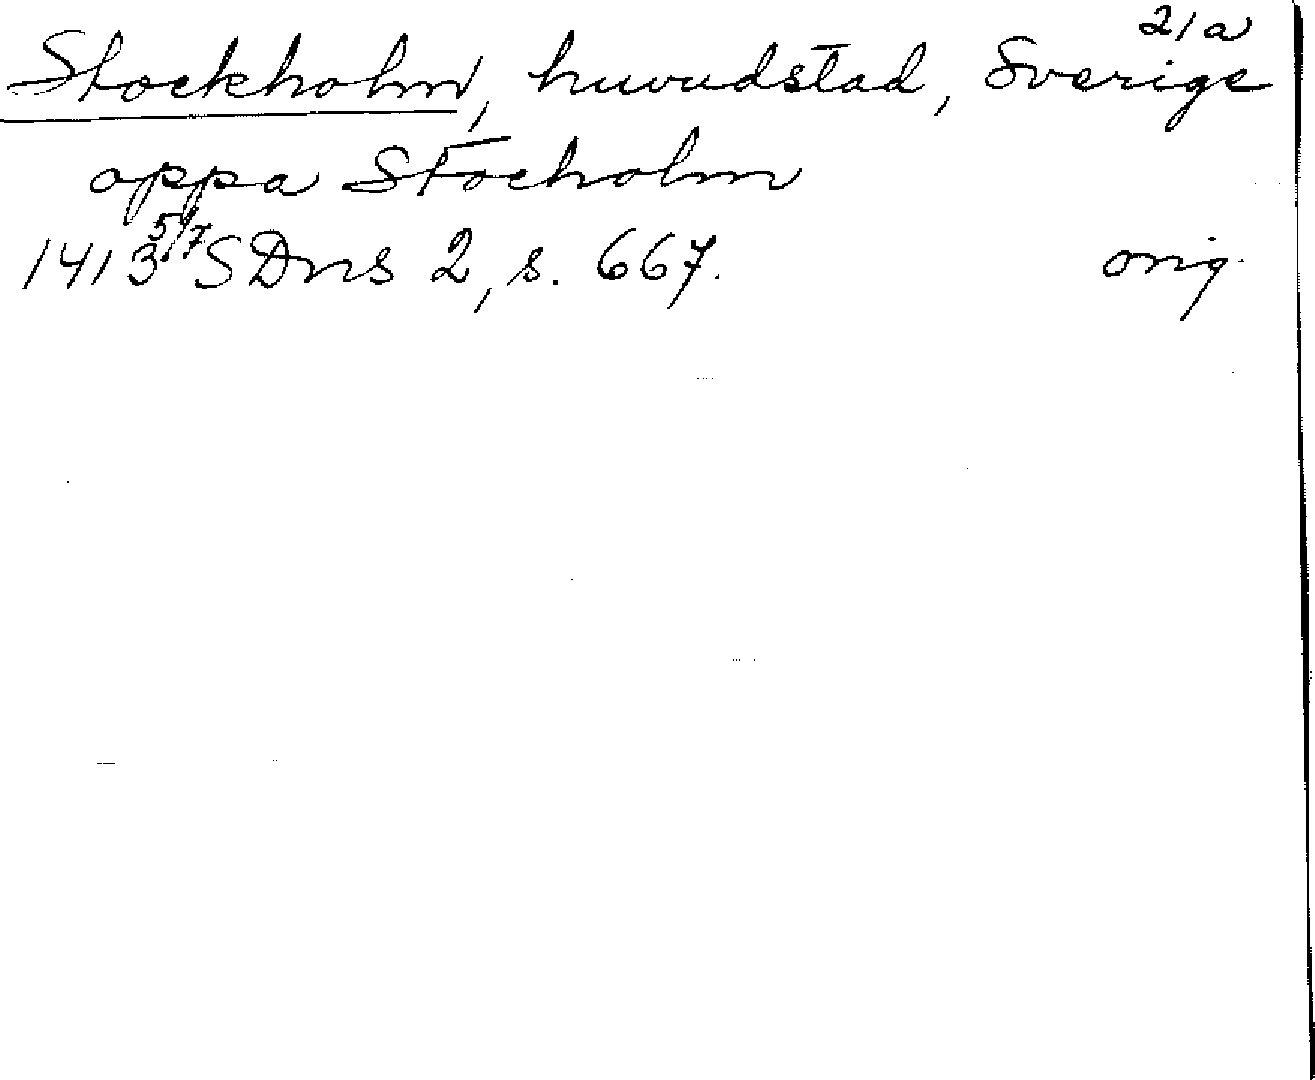 21a
Stockholm, huvudstad, Sverige
oppa Stocholm
1413 5/7 SDns 2, s. 667. orig.